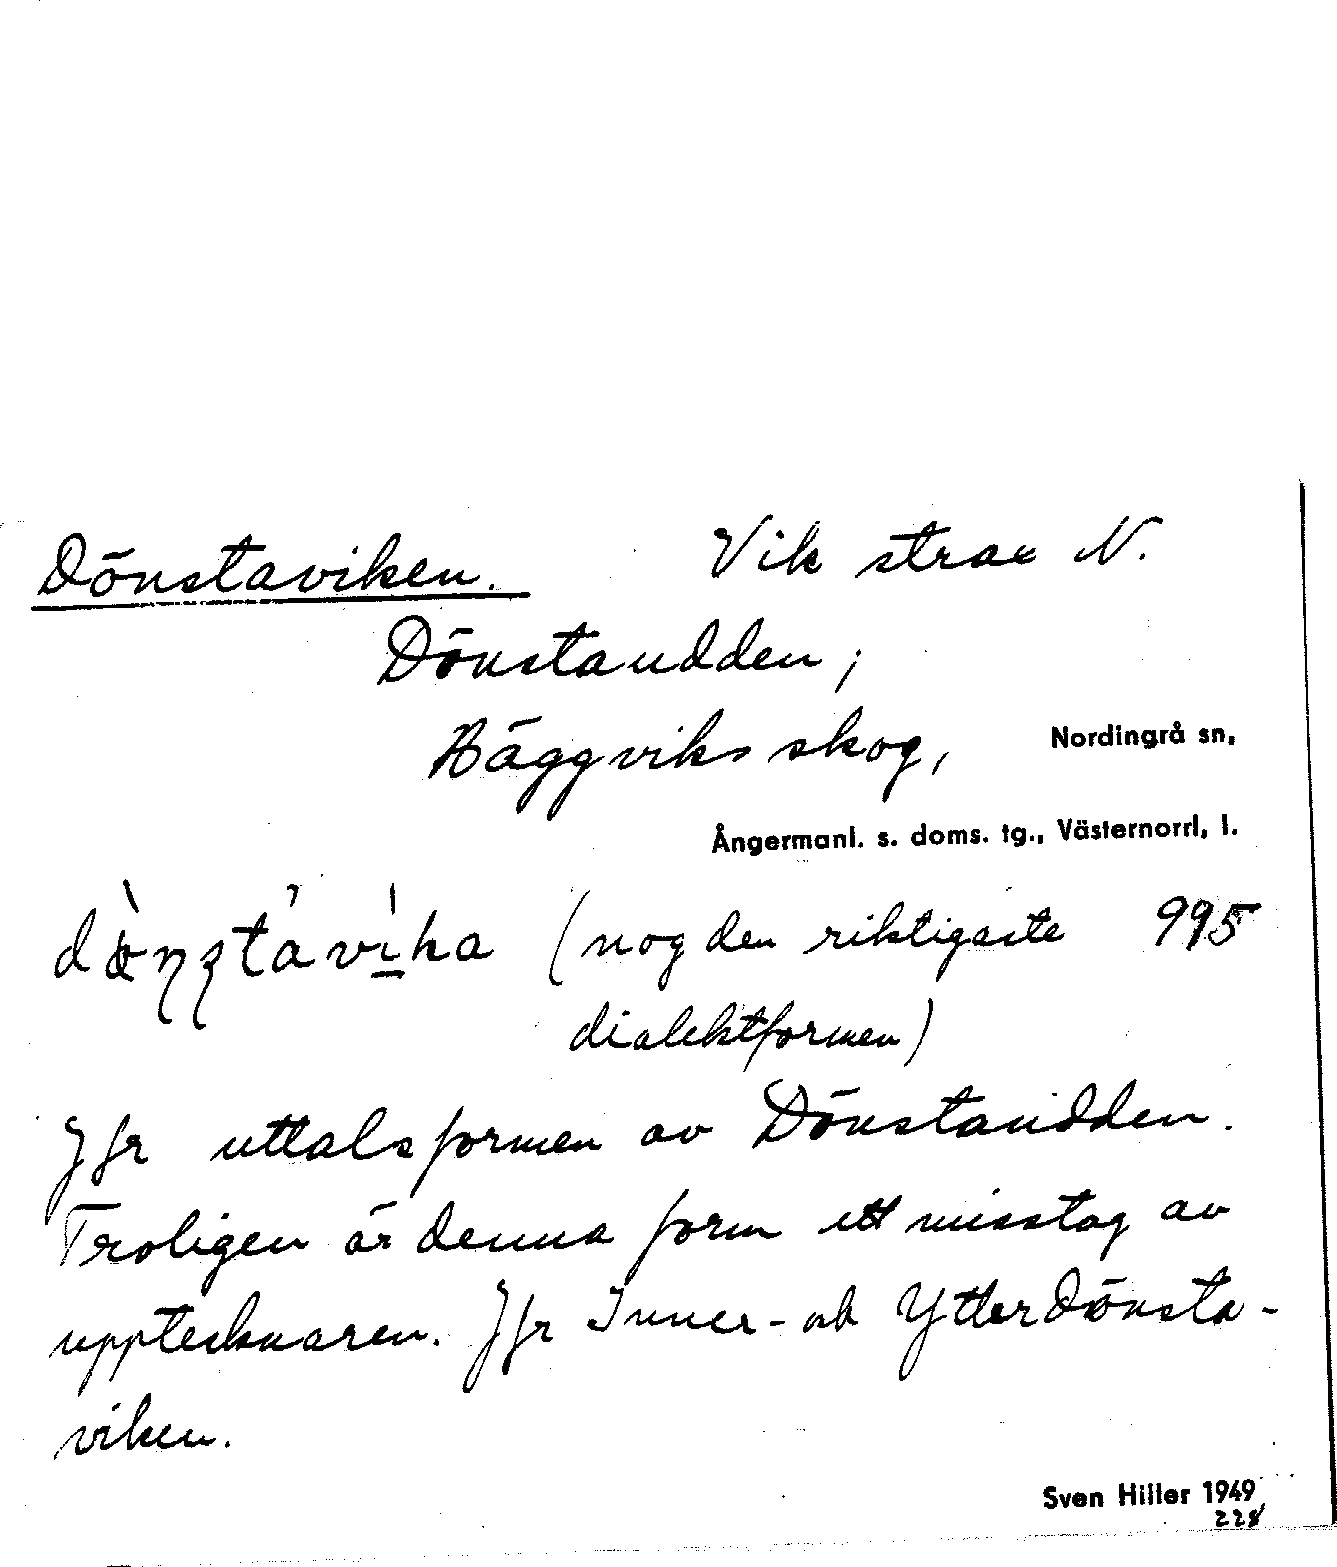 Dönstaviken. Vik strax N.
Dönstaudden;
Häggviks skog, Nordingrå sn,
Ångermanl. s. doms. tg., Västernorrl, l.
(nog den riktigaste 995
dialektformen)
Jfr uttalsformen av Dönstaudden.
Troligen är denna form ett misstag av
upptecknaren. Jfr Inner- och Ytterdönsta-
viken.
Sven Hiller 1949
228